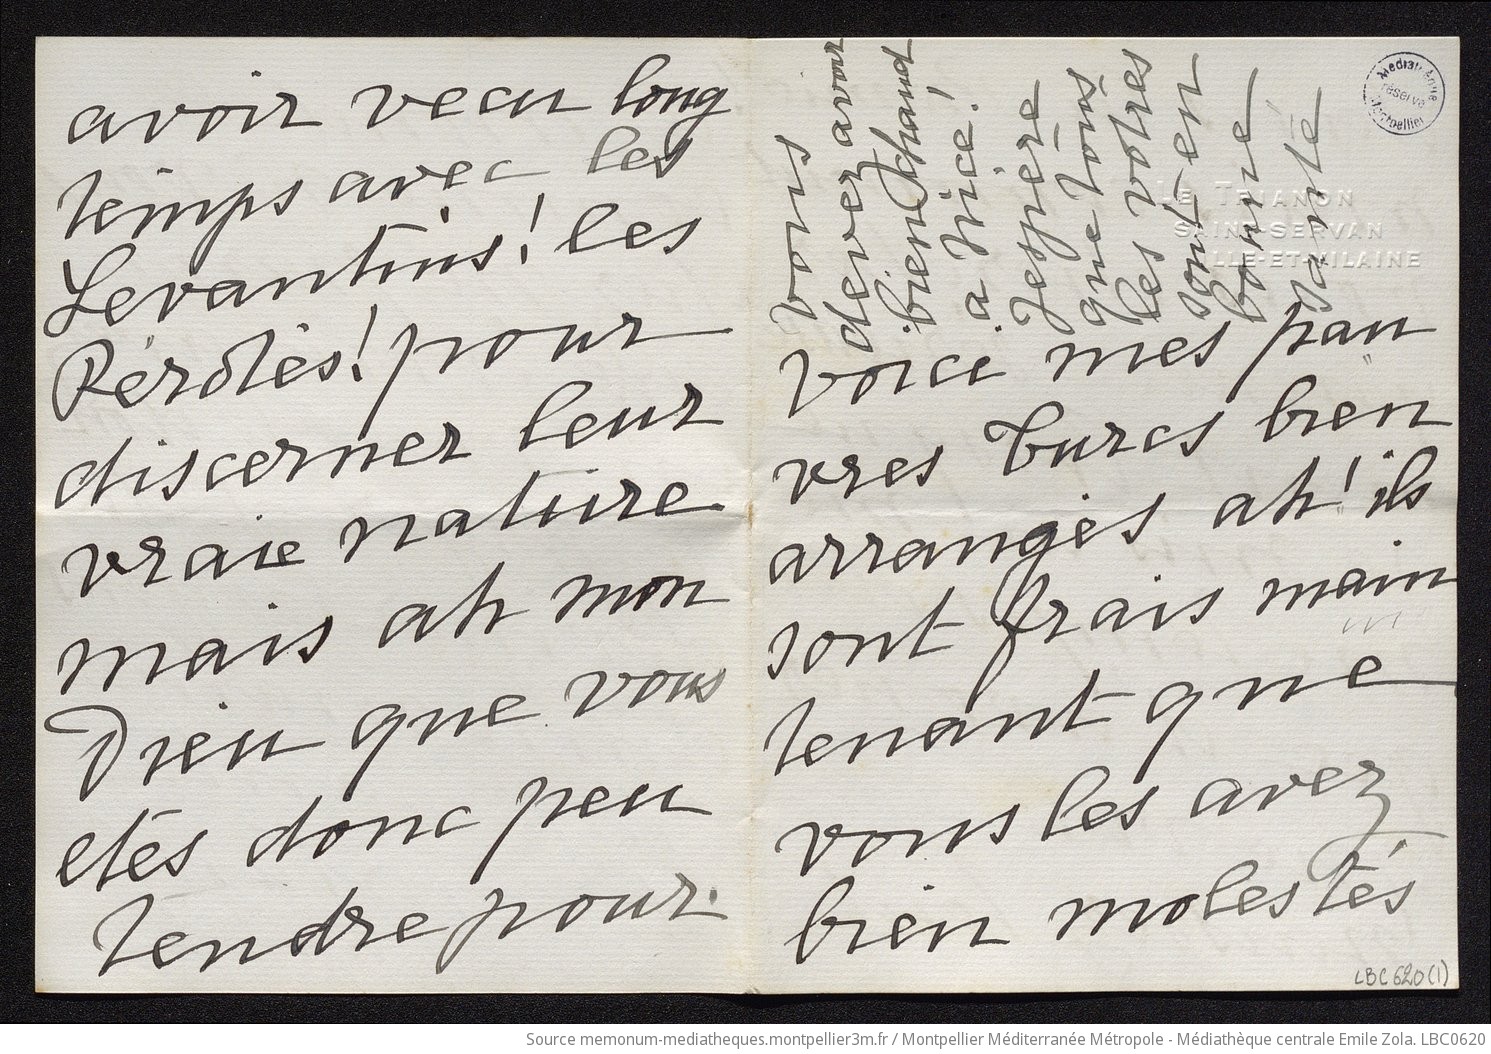 avoir vecu long
temps avec les
Levantins! les
Pérotes! pour
discerner leur
vraie nature
mais ah mon
Dieu que vous
etes donc peu
tendre pour
vous
devez avoir
bien chaud
a Nice!
Jespère
que tous
les votres
sont en
bonne
santé
LE TRIANON
SAINT-SERVAN
ILLE-ET-VILAINE
Médiathèque
réserve
Montpellier
voici mes pau
vres turcs bien
arrangés ah! ils
sont frais main
tenant que
vous les avez
bien molestés
LBC620(1)
Source memonum-mediatheques.montpellier3m.fr / Montpellier Méditerranée Métropole - Médiathèque centrale Emile Zola. LBC0620